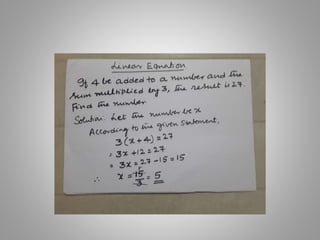 Linear Equation
If 4 be added to a number and the
sum multiplied by 3, the result is 27.
Find the number
Solution: Let the number be x
According to the given statement,
3(x+4) = 27
= 3x+12 = 27
= 3x = 27-15 = 15
∴ x = 15/3 = 5